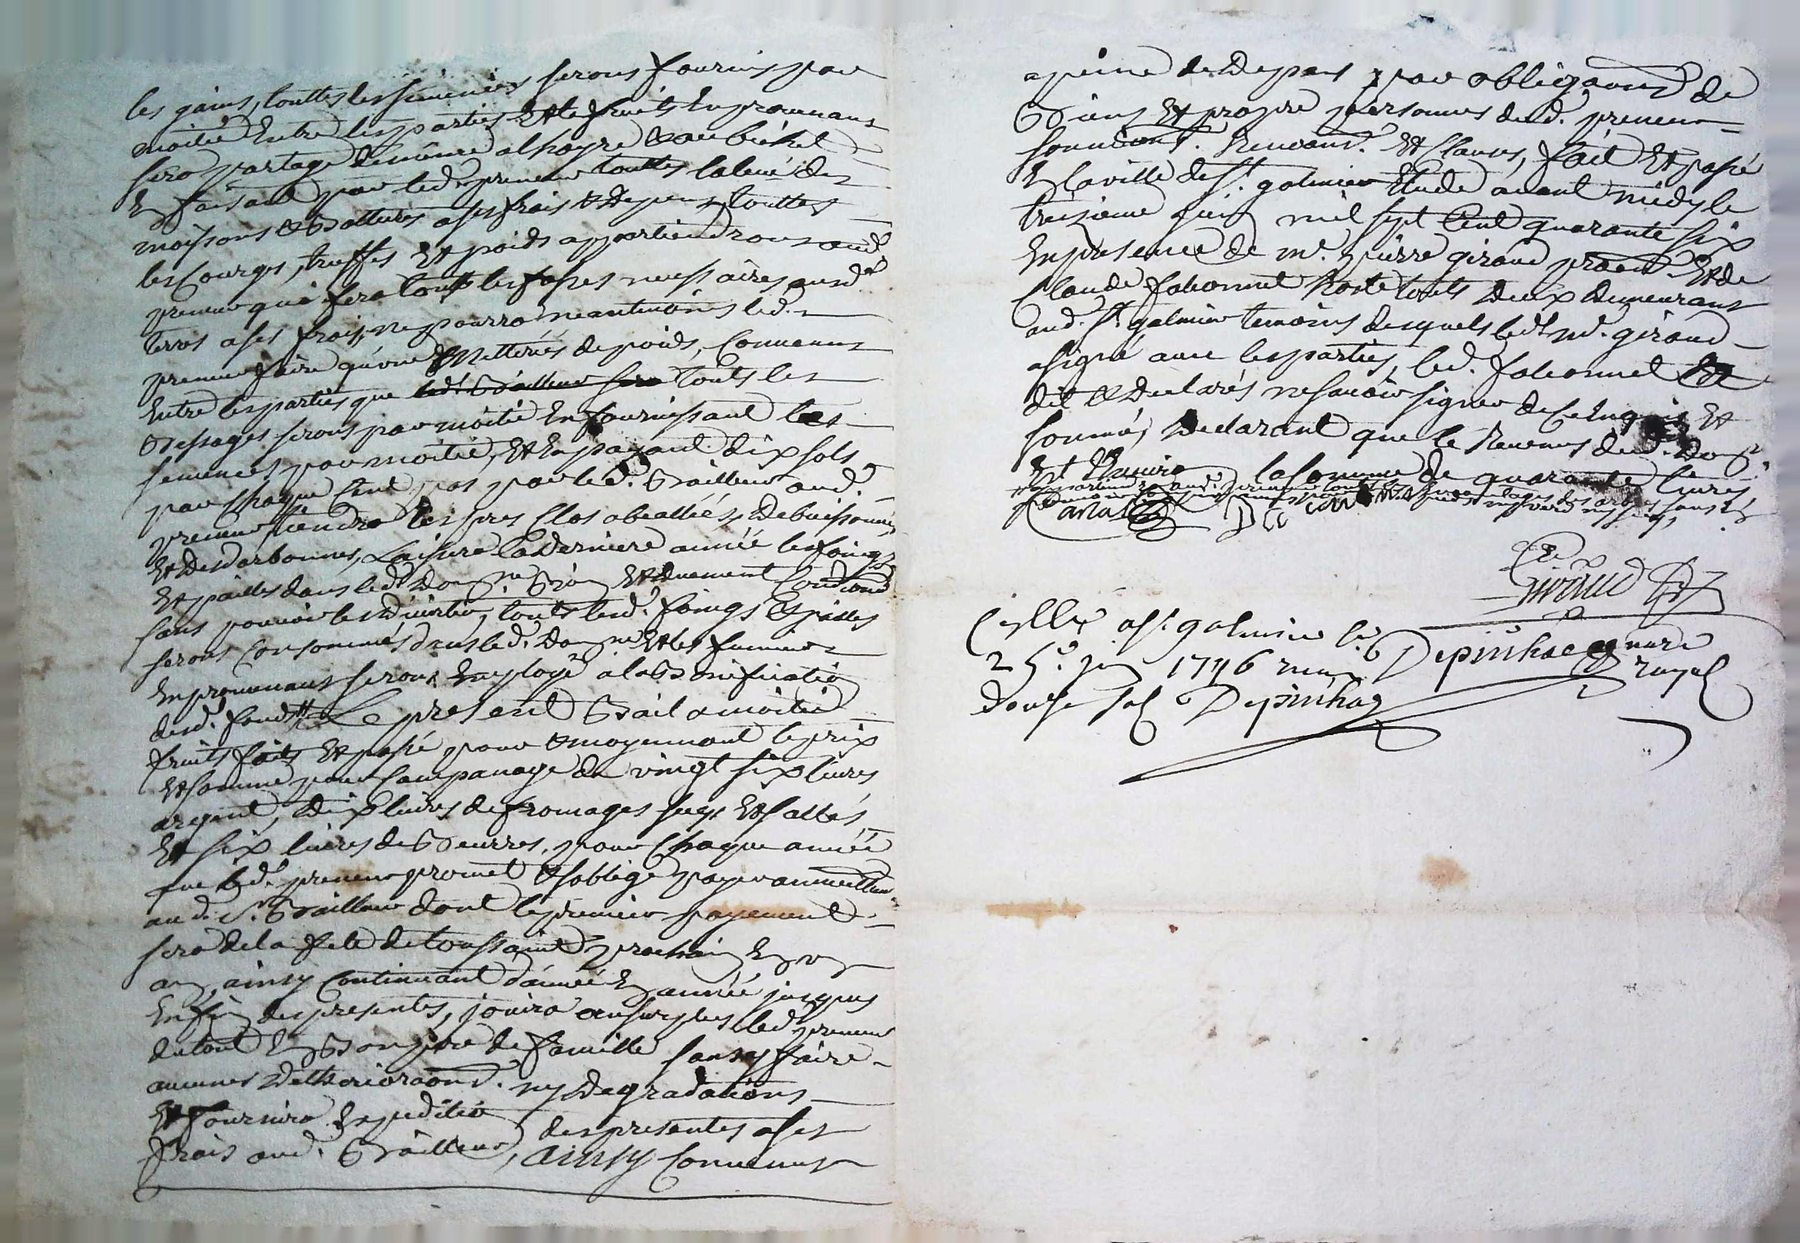 les gains, touttes les semences seront fournies par
moitié Entre les parties Et le fruits En provenant
sera partagé de même a l'hayre & au bichet
En faisant par led. preneur touttes la levée des
moissons & batteures a ses frais & depens, touttes
les Courges, truffes Et poids appartiendront aud.
preneur qui fera touts les fosses necessaires ausd.
terres a ses frais, ne pourra neantmoins led.
preneur faire qu'une de poids, Convenus
Entre les parties que led. Bailleur sera touts les
seront par moitié En fournissant les
semences par moitié, Et En payant dix sols
par Chaque Cent pas par led. Bailleur aud.
preneur tiendra les pres Clos, debuissonnés
Et desdarbonnés, Laissera la derniere année les foings
Et pailles dans led. Dom.ne
sans pouvoir les divertir, touts lesd. foings & pailles
seront Consommés dans led. Dom.ne Et les fumiers
En provenants seront Employé a la Bonification
desd. fonds Le present Bail a moitié
fruits faits Et passé pour & moyennant le prix
Et somme pour Campanage de vingt six livres
argent, dix livres de fromages secs Et sallés
Et six livres de Beurres. pour Chaque année
que led. preneur promet & s'oblige payer annuellem.
aud. Sr. Bailleur dont le premier payement
sera de la fete de toussaint prochain En un
an, ainsy Continuant d'année En année jusques
En fin des presentes, jouira au surplus led. preneur
du tout En Bon pere de famille sans y faire
aucunes detherioraons. ny degradations
Et fournira Expedition des presentes a ses
frais aud. Bailleur, ainsy Convenus
a peine de Depens par obligaons de
Biens Et propre personnes dud. preneur
soumons. Renonons. Et Clauses, fait Et passé
En la ville de St. galmier Etude avant midy le
treizieme juin mil sept Cent quarante six
En presence de mr. pierre giraud Et de
Claude faheonnet hoste touts deux demeurants
aud. St. galmier temoins desquels led. mr. giraud
a signé avec les parties, led. faheonnet
dit & declarés ne scavoir signer de Ce Enquis Et
sommés, declarant que le Revenus dud. Dom.ne
Est la somme de quarante livres
Giraud
Cllé a St. galmier le
25e. juin 1746 reçu
douze sol Depinhac
Depinhac nore
royal